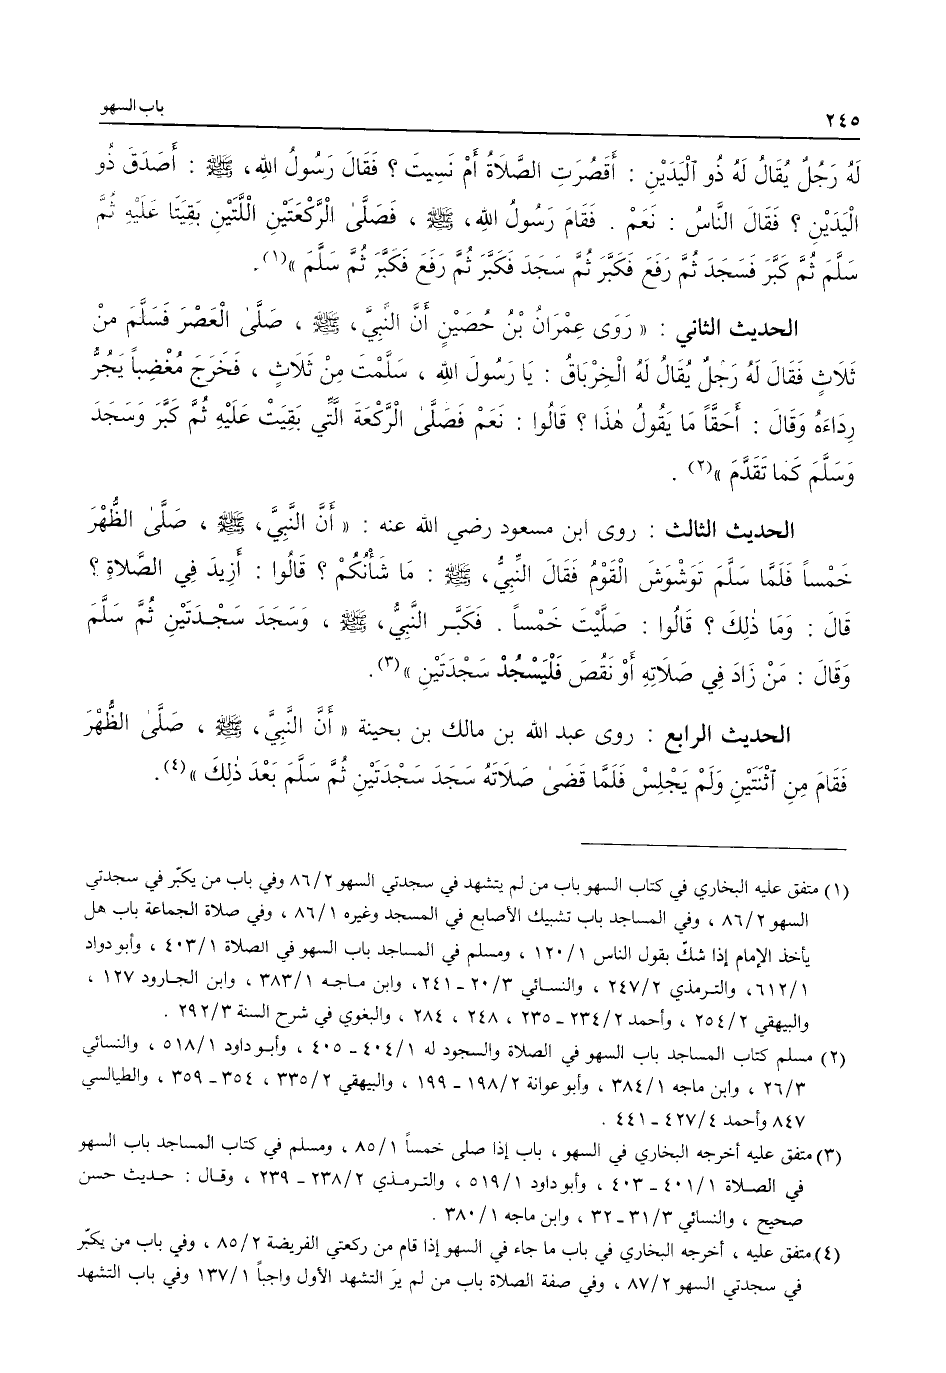 باب السهو
٢٤٥
لَهُ رَجُلٌ يُقَالُ لَهُ ذُو ٱلْيَدَيْنِ : أَقَصُرَتِ الصَّلَاةُ أَمْ نَسِيتَ ؟ فَقَالَ رَسُولُ الله، ﷺ : أَصَدَقَ ذُو
الْيَدَيْنِ ؟ فَقَالَ النَّاسُ : نَعَمْ . فَقَامَ رَسُولُ الله، ﷺ ، فَصَلَّىٰ الْرَّكْعَتَيْنِ اللَّتَيْنِ بَقِيَتَا عَلَيْهِ ثُمَّ
سَلَّمَ ثُمَّ كَبَّرَ فَسَجَدَ ثُمَّ رَفَعَ فَكَبَّرَ ثُمَّ سَجَدَ فَكَبَّرَ ثُمَّ رَفَعَ فَكَبَّرَ ثُمَّ سَلَّمَ »(١).
الحديث الثاني : « رَوَى عِمْرَانُ بْنُ حُصَيْنٍ أَنَّ النَّبِيَّ، ﷺ ، صَلَّىٰ الْعَصْرَ فَسَلَّمَ مِنْ
ثَلَاثٍ فَقَالَ لَهُ رَجُلٌ يُقَالُ لَهُ الْخِرْبَاقُ : يَا رَسُولَ الله ، سَلَّمْتَ مِنْ ثَلَاثٍ ، فَخَرَجَ مُغْضِباً يَجُرُّ
رِدَاءَهُ وَقَالَ : أَحَقَّاً مَا يَقُولُ هٰذَا ؟ قَالُوا : نَعَمْ فَصَلَّىٰ الْرَّكْعَةَ الَّتِي بَقِيَتْ عَلَيْهِ ثُمَّ كَبَّرَ وَسَجَدَ
وَسَلَّمَ كَمَا تَقَدَّمَ »(٢) .
الحديث الثالث : روى ابن مسعود رضي الله عنه : « أَنَّ النَّبِيَّ، ﷺ ، صَلَّىٰ الظُّهْرَ
خَمْساً فَلَمَّا سَلَّمَ تَوَشْوَشَ الْقَوْمُ فَقَالَ النَّبِيُّ، ﷺ : مَا شَأْنُكُمْ ؟ قَالُوا : أَزِيدَ فِي الصَّلاةِ ؟
قَالَ : وَمَا ذٰلِكَ ؟ قَالُوا : صَلَّيْتَ خَمْساً . فَكَبَّرَ النَّبِيُّ، ﷺ ، وَسَجَدَ سَجْدَتَيْنِ ثُمَّ سَلَّمَ
وَقَالَ : مَنْ زَادَ فِي صَلَاتِهِ أَوْ نَقُصَ فَلْيَسْجُدْ سَجْدَتَيْنِ »(٣).
الحديث الرابع : روى عبد الله بن مالك بن بحينة « أَنَّ النَّبِيَّ، ﷺ ، صَلَّىٰ الظُّهْرَ
فَقَامَ مِنِ ٱثْنَتَيْنِ وَلَمْ يَجْلِسْ فَلَمَّا قَضَىٰ صَلَاتَهُ سَجَدَ سَجْدَتَيْنِ ثُمَّ سَلَّمَ بَعْدَ ذٰلِكَ »(٤).
(١) متفق عليه البخاري في كتاب السهو باب من لم يتشهد في سجدتي السهو ٨٦/٢ وفي باب من يكبّر في سجدتي
السهو ٨٦/٢ ، وفي المساجد باب تشبيك الأصابع في المسجد وغيره ٨٦/١ ، وفي صلاة الجماعة باب هل
يأخذ الإمام إذا شكّ بقول الناس ١٢٠/١ ، ومسلم في المساجد باب السهو في الصلاة ٤٠٣/١ ، وأبو دواد
٦١٢/١، والترمذي ٢٤٧/٢ ، والنسائي ٢٠/٣ ـ ٢٤١، وابن ماجه ٣٨٣/١ ، وابن الجارود ١٢٧ ،
والبيهقي ٢٥٤/٢ ، وأحمد ٢٣٤/٢ ـ ٢٣٥ ، ٢٤٨ ، ٢٨٤ ، والبغوي في شرح السنة ٢٩٢/٣ .
(٢) مسلم كتاب المساجد باب السهو في الصلاة والسجود له ٤٠٤/١ ـ ٤٠٥ ، وأبو داود ٥١٨/١ ، والنسائي
٢٦/٣ ، وابن ماجه ٣٨٤/١ ، وأبو عوانة ١٩٨/٢ ـ ١٩٩ ، والبيهقي ٣٣٥/٢ ، ٣٥٤ ـ ٣٥٩ ، والطيالسي
٨٤٧ وأحمد ٤٢٧/٤ ـ ٤٤١ .
(٣) متفق عليه أخرجه البخاري في السهو ، باب إذا صلى خمساً ٨٥/١ ، ومسلم في كتاب المساجد باب السهو
في الصلاة ٤٠١/١ ـ ٤٠٣ ، وأبو داود ٥١٩/١ ، والترمذي ٢٣٨/٢ ـ ٢٣٩ ، وقال : حديث حسن
صحيح ، والنسائي ٣١/٣ ـ ٣٢ ، وابن ماجه ٣٨٠/١ .
(٤) متفق عليه ، أخرجه البخاري في باب ما جاء في السهو إذا قام من ركعتي الفريضة ٨٥/٢ ، وفي باب من يكبّر
في سجدتي السهو ٨٧/٢ ، وفي صفة الصلاة باب من لم يرَ التشهد الأول واجباً ١٣٧/١ وفي باب التشهد